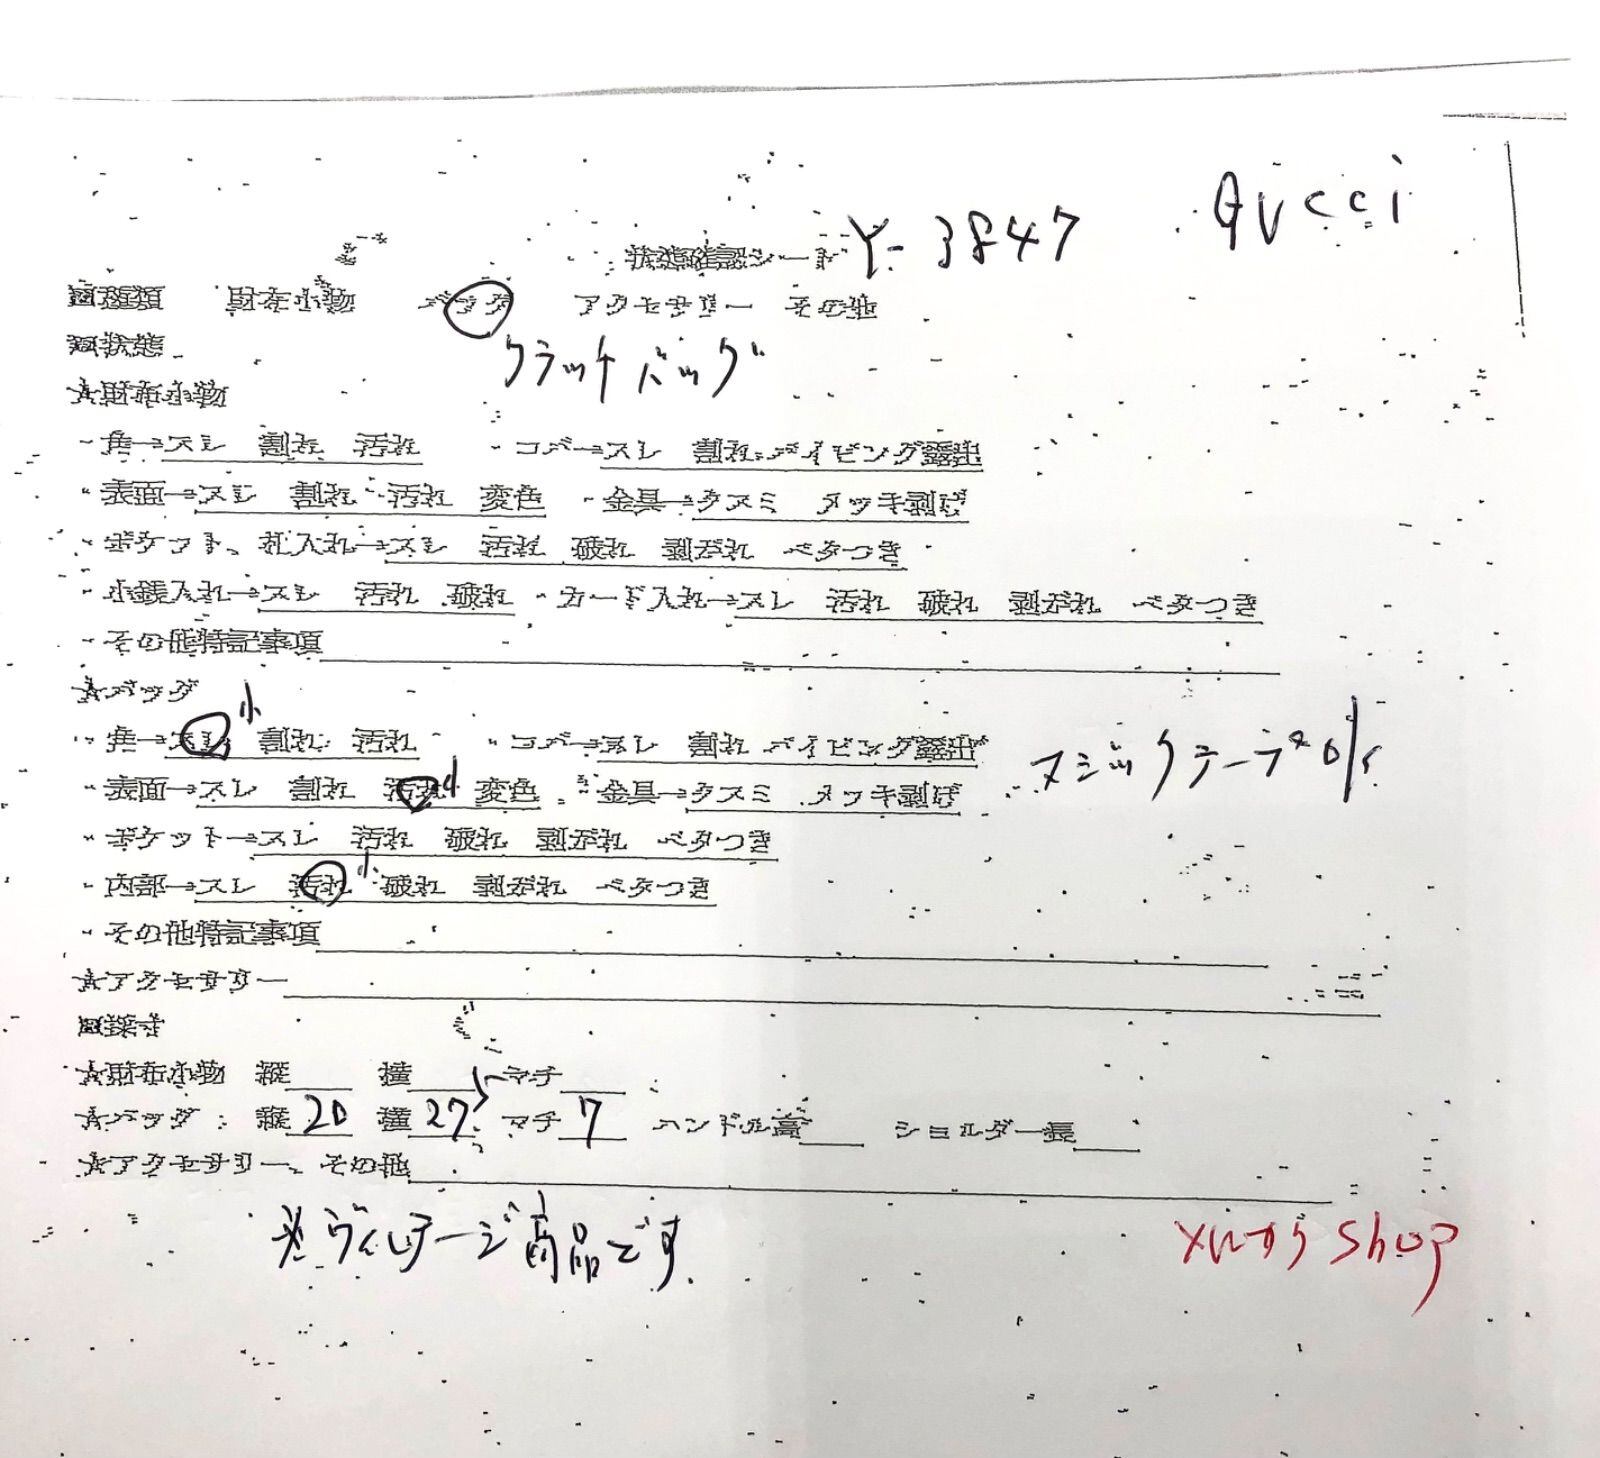 Gucci
状態確認シート Y-3847
□種類 財布小物 バッグ アクセサリー その他
クラッチバッグ
□状態
★財布小物
・角→スレ 割れ 汚れ ・コバ→スレ 割れ パイピング露出
・表面→スレ 割れ 汚れ 変色 ・金具→クスミ メッキ剥げ
・ポケット、札入れ→スレ 汚れ 破れ 剥がれ ベタつき
・小銭入れ→スレ 汚れ 破れ ・カード入れ→スレ 汚れ 破れ 剥がれ ベタつき
・その他特記事項
★バッグ
・角→スレ小 割れ 汚れ ・コバ→スレ 割れ パイピング露出
マジックテープOK
・表面→スレ 割れ 汚れ小 変色 ・金具→クスミ メッキ剥げ
・ポケット→スレ 汚れ 破れ 剥がれ ベタつき
・内部→スレ 汚れ小 破れ 剥がれ ベタつき
・その他特記事項
★アクセサリー
□採寸
★財布小物 縦 横 マチ
★バッグ: 縦20 横27.5 マチ7 ハンドル高 ショルダー長
★アクセサリー、その他
※ヴィンテージ商品です
shop